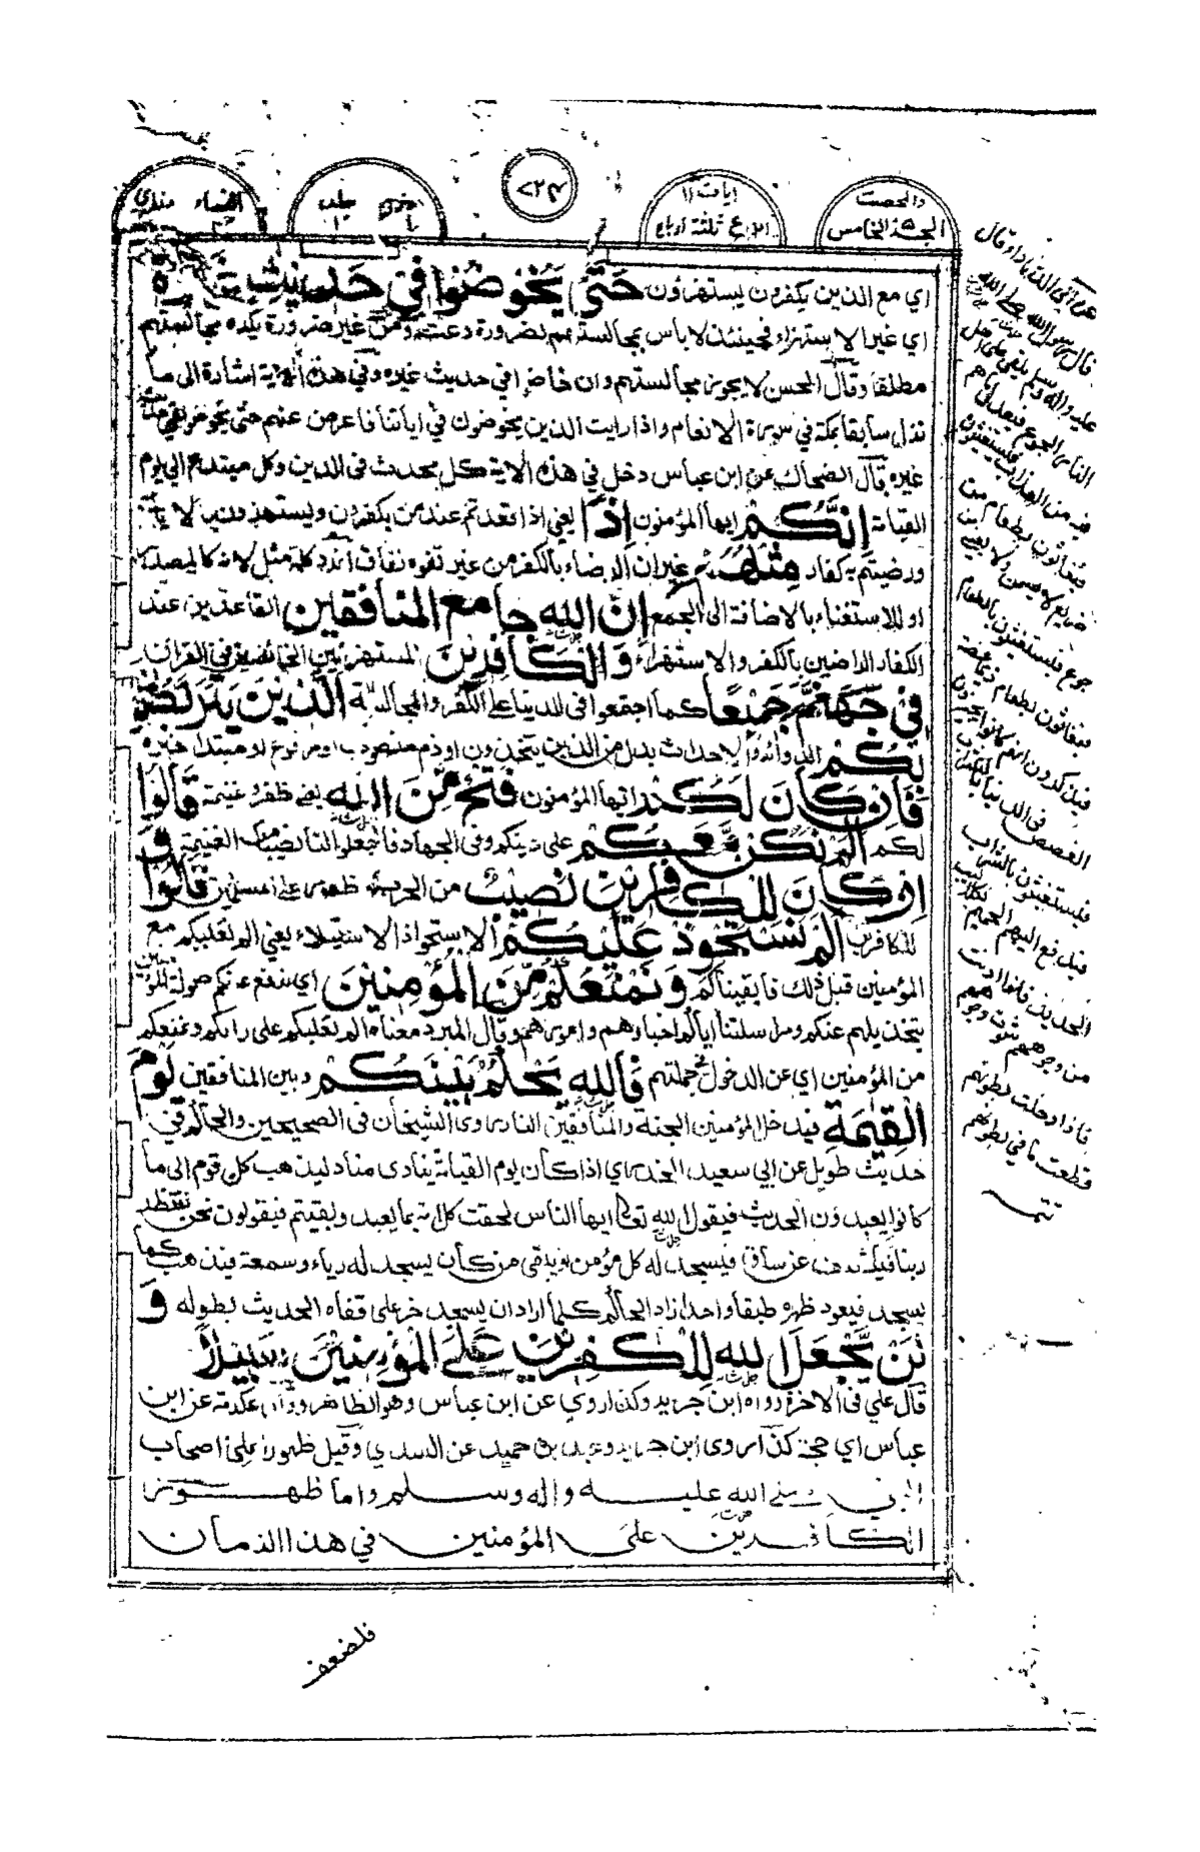 والمحصنت
الجزء الخامس
ايات ١١
تلثة ارباع
جلد
النساء
اي مع الذين يكفرون يستهزؤن حَتّٰى يَخُوْضُوْا فِيْ حَدِيْثٍ غَيْرِهٖ
اي غير الاستهزاء فحينئذ لا باس بمجالستهم لضرورة دعت ومن غير ضرورة يكره مجالستهم
مطلقا وقال الحسن لا يجوز مجالستهم وان خاضوا في حديث غيره وفي هذه الاية اشارة الى ما
نزل سابقا بمكة في سورة الانعام واذا رايت الذين يخوضون في اياتنا فاعرض عنهم حتى يخوضوا في حديث
غيره قال الضحاك عن ابن عباس دخل في هذه الاية كل محدث في الدين وكل مبتدع الى يوم
القيامة اِنَّكُمْ ايها المؤمنون اِذًا يعني اذا قعدتم عند من يكفرون ويستهزون بالايات
ورضيتم به كفار مِثْلُهُمْ غير ان الرضاء بالكفر من غير تفوه نفاق افرد كلمة مثل لانه كالمصدر
او للاستغناء بالاضافة الى الجمع اِنَّ اللهَ جَامِعُ الْمُنَافِقِيْنَ القاعدين عند
الكفار الراضين بالكفر والاستهزاء وَالْكَافِرِيْنَ المستهزئين الخائضين في القرآن
فِيْ جَهَنَّمَ جَمِيْعًا كما اجتمعوا في الدنيا على الكفر والمجالسة الَّذِيْنَ يَتَرَبَّصُوْنَ
بِكُمْ الدوائر والاحداث بدل من الذين يتخذون او ذم منصوب او مرفوع او مبتدا خبره
فَاِنْ كَانَ لَكُمْ ايها المؤمنون فَتْحٌ مِّنَ اللهِ يعني ظفر وغنيمة قَالُوْا
لكم اَلَمْ نَكُنْ مَّعَكُمْ على دينكم وفي الجهاد فاجعلوا لنا نصيبا من الغنيمة وَ
اِنْ كَانَ لِلْكَافِرِيْنَ نَصِيْبٌ من الحرب ظهور على المسلمين قَالُوْا
للكافرين اَلَمْ نَسْتَحْوِذْ عَلَيْكُمْ الاستحواذ الاستيلاء يعني الم نغلبكم مع
المؤمنين قبل ذلك فابقيناكم وَنَمْنَعْكُمْ مِّنَ الْمُؤْمِنِيْنَ اي ندفع عنكم صولة المؤمنين
بتخذيلهم عنكم ومراسلتنا اياكم اخبارهم وامورهم وقال المبرد معناه الم نغلبكم على رايكم ونمنعكم
من المؤمنين اي عن الدخول في جملتهم فَاللهُ يَحْكُمُ بَيْنَكُمْ وبين المنافقين يَوْمَ
الْقِيٰمَةِ فيدخل المؤمنين الجنة والمنافقين النار روى الشيخان في الصحيحين والحاكم في
حديث طويل عن ابي سعيد الخدري اذا كان يوم القيامة ينادى مناد ليذهب كل قوم الى ما
كانوا يعبدون الحديث فيقول الله تعالى ايها الناس لحقت كل امة بما يعبد وبقيتم فيقولون نحن ننتظر
ربنا فيكشف عن ساق فيسجد له كل مؤمن ويبقى من كان يسجد له رياء وسمعة فيذهب كيما
يسجد فيعود ظهره طبقا واحدا زاد الحاكم كلما اراد ان يسجد خر على قفاه الحديث بطوله وَ
لَنْ يَّجْعَلَ اللهُ لِلْكٰفِرِيْنَ عَلَى الْمُؤْمِنِيْنَ سَبِيْلًا
قال علي في الاخرة رواه ابن جرير وكذا روي عن ابن عباس وهو الظاهر وروى عكرمة عن ابن
عباس اي حجة كذا روى ابن جرير وعبد بن حميد عن السدي وقيل ظهورا على اصحاب
النبي صلى الله عليه واله وسلم واما ظهور
الكافرين على المؤمنين في هذا الزمان
فلضعف
عن ابي الدرداء قال
قال رسول الله صلى الله
عليه واله وسلم يلقى على اهل
النار الجوع فيعدل ما هم
فيه من العذاب فيستغيثون
فيغاثون بطعام من
ضريع لا يسمن ولا يغني من
جوع فيستغيثون بالطعام
فيغاثون بطعام ذي غصة
فيذكرون انهم كانوا يجيزون
الغصص في الدنيا بالشراب
فيستغيثون بالشراب
فيدفع اليهم الحميم بكلاليب
الحديد فاذا دنت
من وجوههم شوت وجوههم
فاذا دخلت بطونهم
قطعت ما في بطونهم